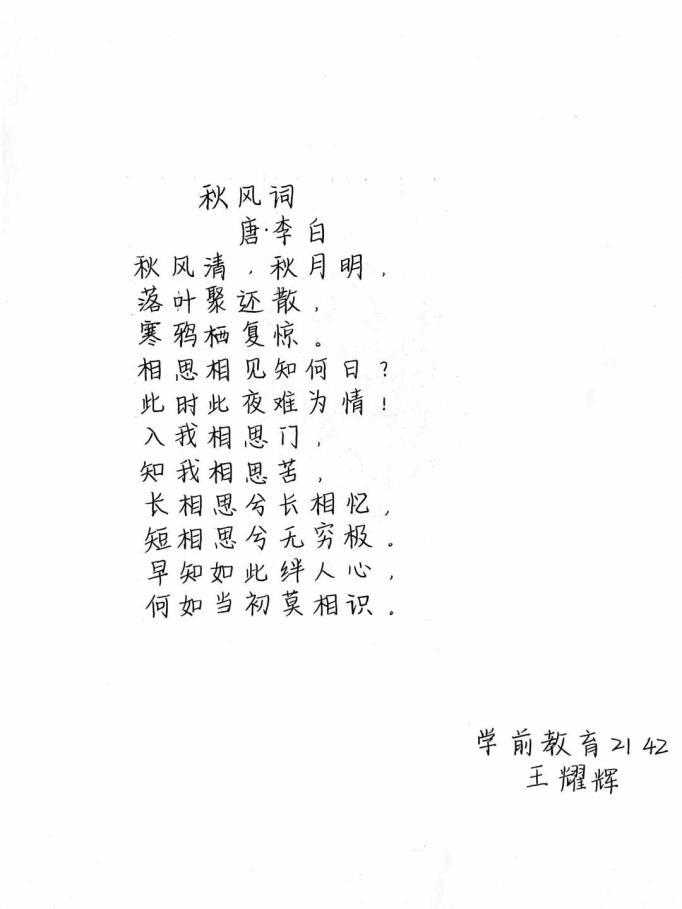 秋风词
唐·李白
秋风清，秋月明，
落叶聚还散，
寒鸦栖复惊。
相思相见知何日？
此时此夜难为情！
入我相思门，
知我相思苦，
长相思兮长相忆，
短相思兮无穷极。
早知如此绊人心，
何如当初莫相识。
学前教育2142
王耀辉